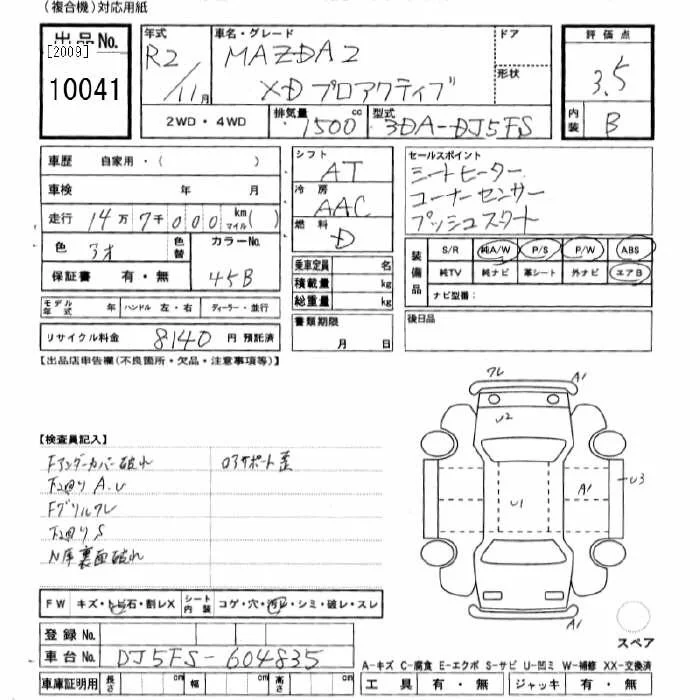 (複合機)対応用紙
出品No.
[2009]
10041
年式
R2/11月
車名・グレード
MAZDA2
XD プロアクティブ
ドア
形状
2WD・4WD
排気量
1500cc
型式
3DA-DJ5FS
評価点
3.5
内装
B
車歴 自家用・( )
車検 年 月
走行 14万7千000km マイル( )
色 アオ
色替
カラーNo.
45B
保証書 有・無
モデル年式 年 ハンドル 左・右 ディーラー・並行
リサイクル料金 8140円 預託済
シフト
AT
冷房
AAC
燃料
D
乗車定員 名
積載量 kg
総重量 kg
書類期限
月 日
セールスポイント
シートヒーター
コーナーセンサー
プッシュスタート
装備品
S/R 純A/W P/S P/W ABS
純TV 純ナビ 革シート 外ナビ エアB
ナビ型番:
後日品
【出品店申告欄(不良箇所・欠品・注意事項等)】
【検査員記入】
Fアンダーカバー破れ
ロアサポート歪
下廻り A.U
Fグリルワレ
下廻り S
N席裏面破れ
ワレ
A1
U2
U1
A1
U3
A1
FW キズ・トビ石・割レX
シート内装 コゲ・穴・汚レ・シミ・破レ・スレ
登録No.
車台No. DJ5FS-604835
車庫証明用 長さ cm 幅 cm 高さ cm
スペア
A-キズ C-腐食 E-エクボ S-サビ U-凹ミ W-補修 XX-交換済
工具 有・無 ジャッキ 有・無